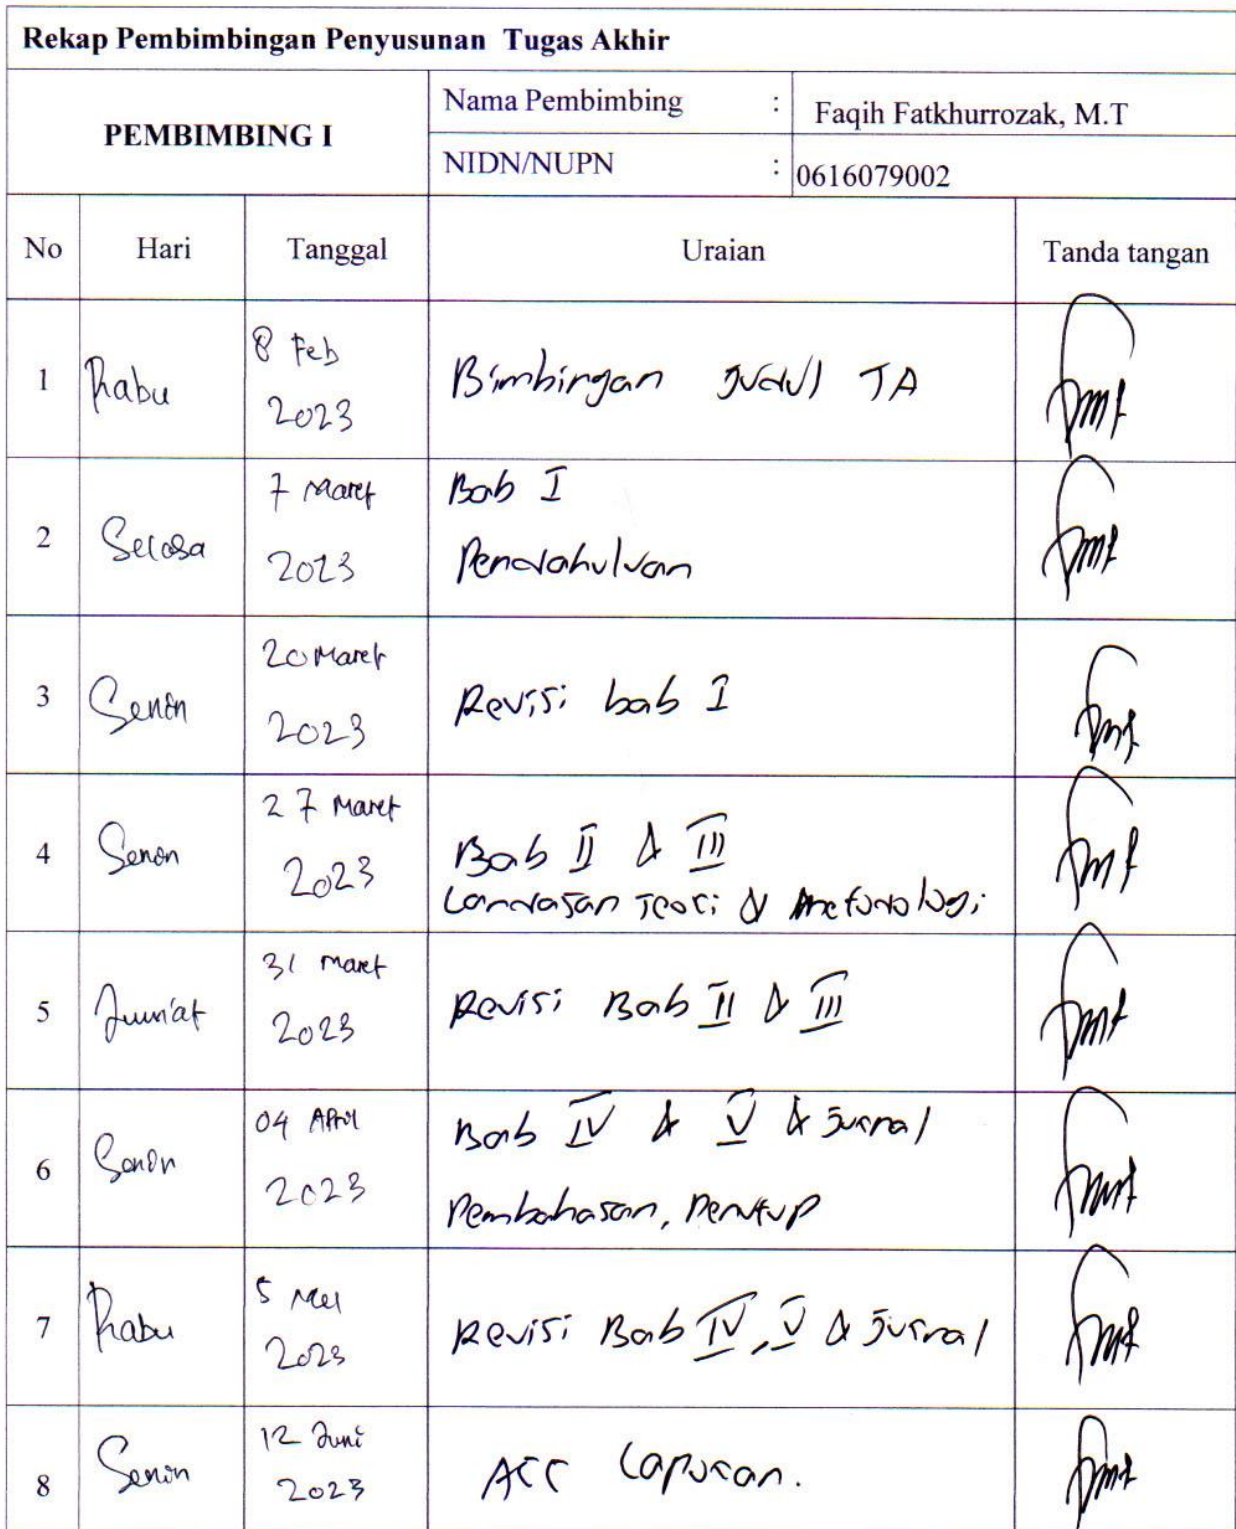 Rekap Pembimbingan Penyusunan Tugas Akhir
PEMBIMBING I
Nama Pembimbing : Faqih Fatkhurrozak, M.T
NIDN/NUPN : 0616079002
No Hari Tanggal Uraian Tanda tangan
1 Rabu 8 Feb 2023 Bimbingan Judul TA
2 Selasa 7 Maret 2023 Bab I
Pendahuluan
3 Senin 20 Maret 2023 Revisi bab I
4 Senin 27 Maret 2023 Bab II & III
Landasan Teori & Metodologi
5 Jum'at 31 Maret 2023 Revisi Bab II & III
6 Senin 04 April 2023 Bab IV & V & Jurnal
Pembahasan, Penutup
7 Rabu 5 Mei 2023 Revisi Bab IV, V & Jurnal
8 Senin 12 Juni 2023 ACC Laporan.